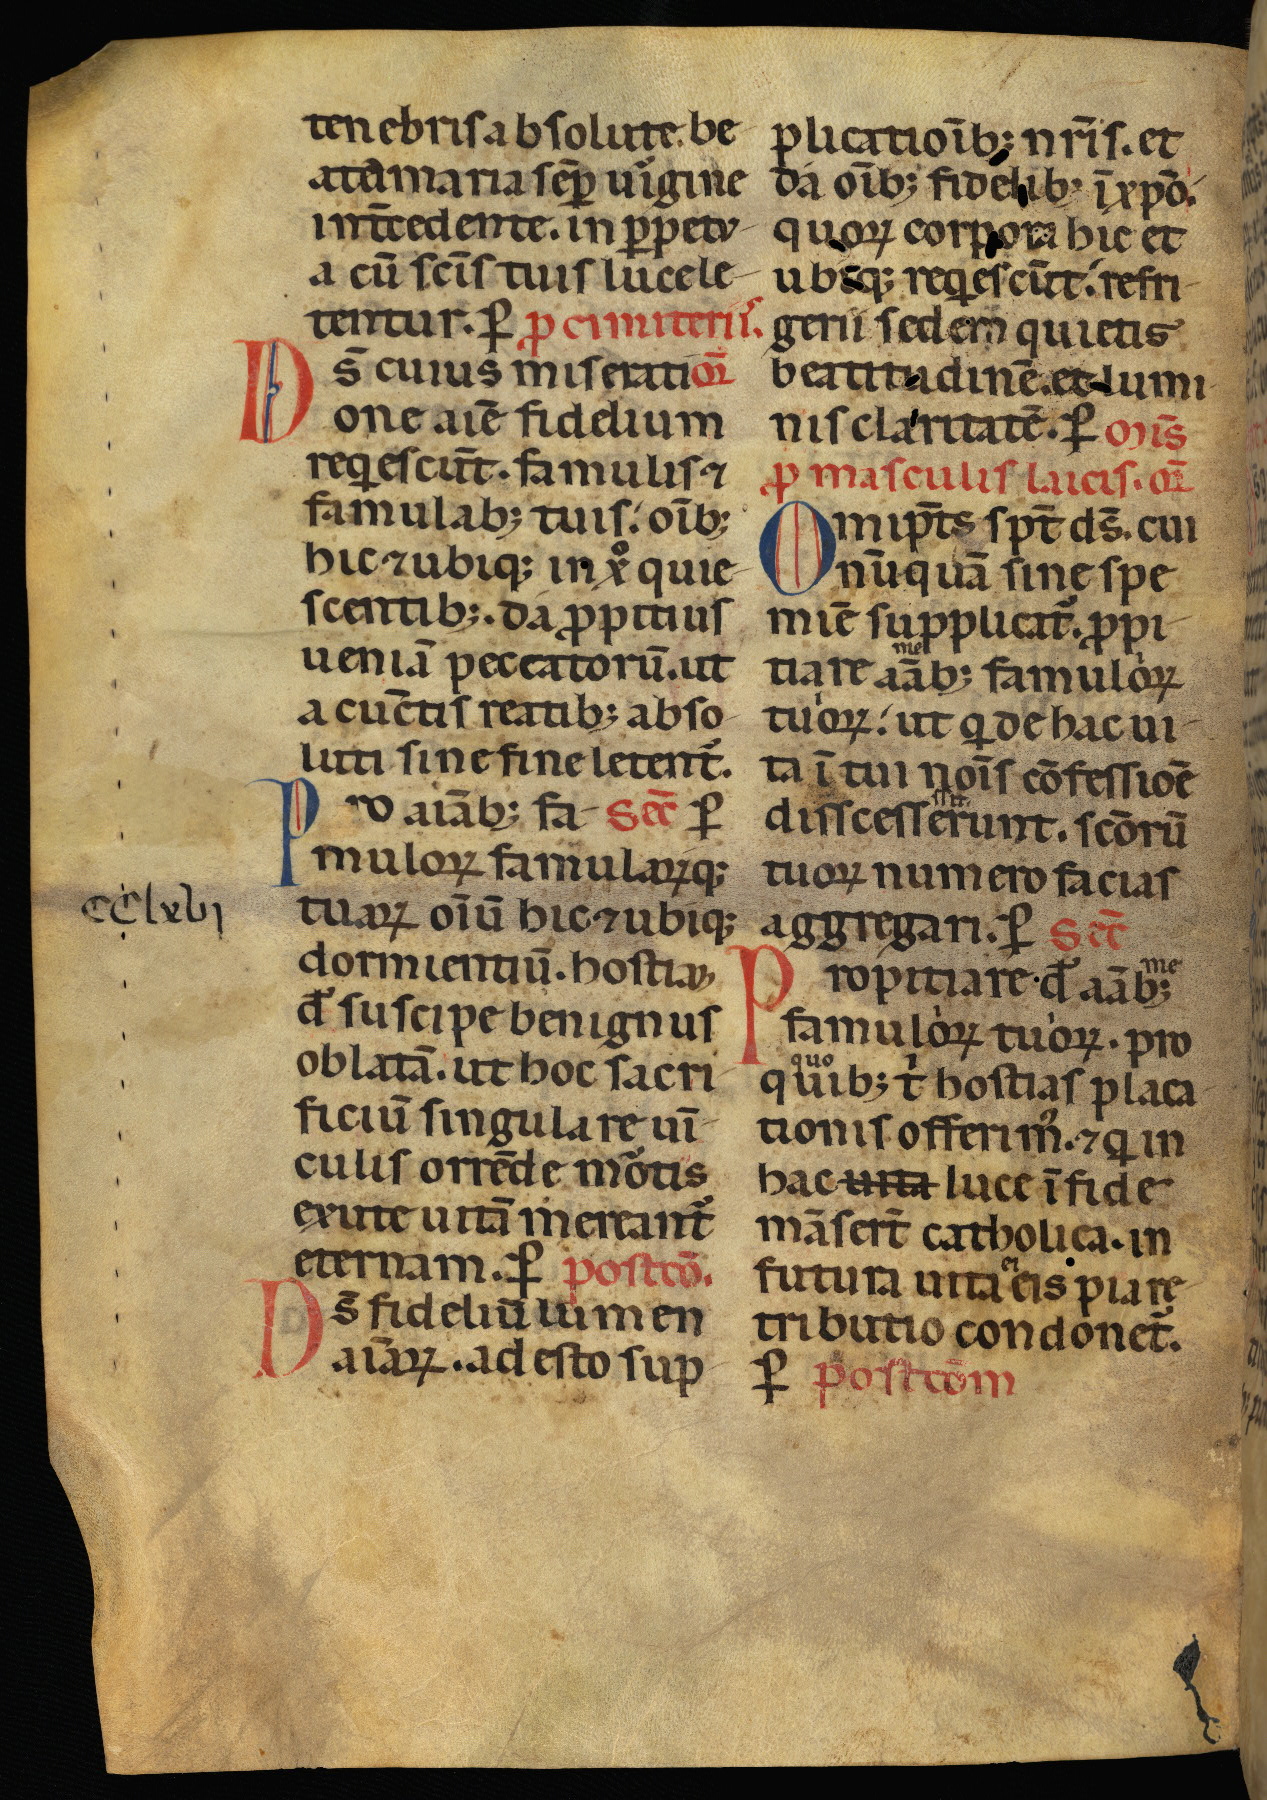 tenebris absolute. be
ata maria sēp uıͦgine
int̄cedente. in ꝑpetu
a cū sc̄is tuis lucele
tentur. ꝑ ꝓ cimiteriis.
Ds̄ cuius miserati or̄
one aīe fidelium
reqͥescūt. famulis ⁊
famulab; tuis. oīb;
hic ⁊ ubiq; in xͦ quie
scentib;. da ꝓpitius
ueniā peccatorū. ut
a cūctis reatib; abso
luti sine fine letent᷑.
Pro aīab; fa Sec̄ ꝑ
muloꝝ famulaꝝq;
CClxvi
tuaꝝ oīū hic ⁊ ubiq;
dormientiū. hostiā
d᷑ suscipe benignus
oblatā. ut hoc sacri
ficiū singulare uī
culis orrēde mōtis
exute uitā mereant᷑
eternam. ꝑ postcō.
Ds̄ fidelíū lumen
aīaꝝ. adesto sup
plicatiōib; nr̄is. et
da oīb; fidelib; ī xp̄o.
quoꝝ corpora hic et
ubiq; reqͥescūt. refri
gerii sedem quietis
beatitudinē. et lumi
nis claritatē. ꝑ Mīs
ꝓ masculis laicis. or̄
Omip̄ts sp̄t ds̄. cui
nūquā sine spe
mīe supplicat᷑. ꝓpi
tiare aāb; me famuloꝝ
tuoꝝ. ut qͥ de hac ui
ta ī tui noīs cōfessiōe
disscesserunt. ssit scōrū
tuoꝝ numero facias
aggregari. ꝑ Sec̄
Propitiare d᷑ aāb; me
famuloꝝ tuoꝝ. pro
quib; quo t͛ hostias placa
tionis offerim᷒. ⁊ qͥ in
hac uita luce ī fide
māser̄t catholica. in
futura uita ei eis pia re
tributio condonet᷑.
ꝑ postcōm